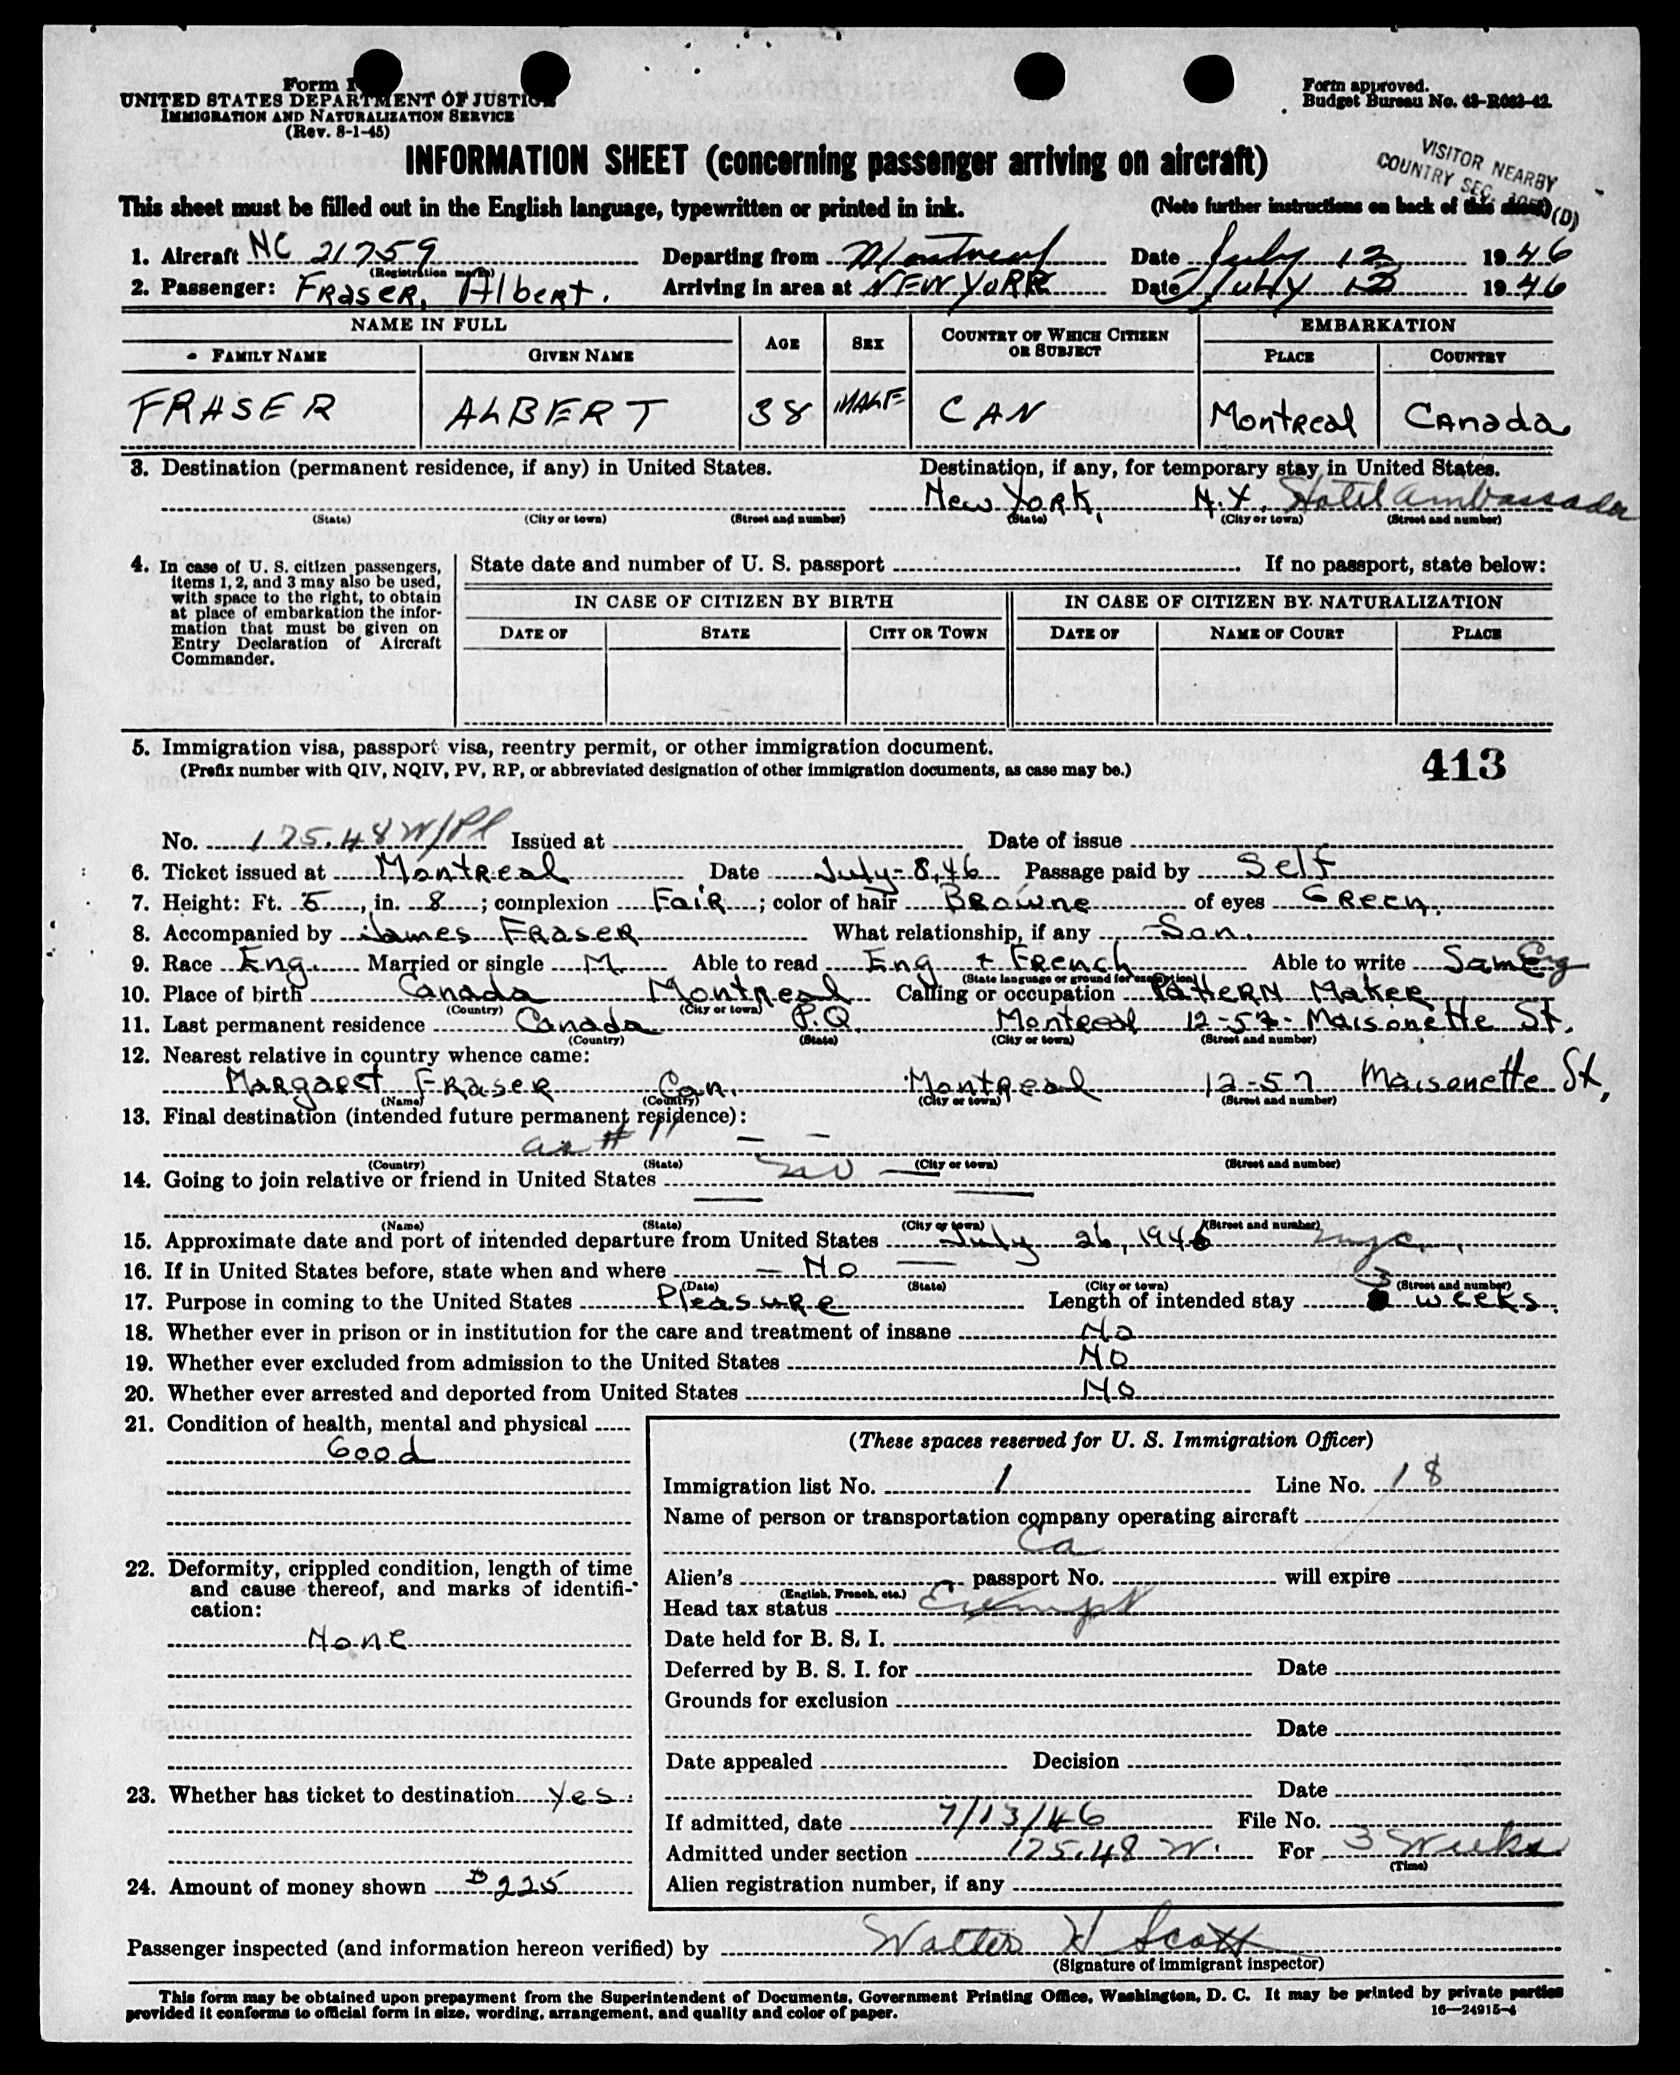 Form I
UNITED STATES DEPARTMENT OF JUSTICE
IMMIGRATION AND NATURALIZATION SERVICE
(Rev. 8-1-45)
Form approved.
Budget Bureau No.
INFORMATION SHEET (concerning passenger arriving on aircraft)
VISITOR NEARBY
COUNTRY SEC. (D)
This sheet must be filled out in the English language, typewritten or printed in ink. (Note further instructions on back of this sheet)
1. Aircraft NC 21759 Departing from Montreal Date July 12 1946
(Registration marks)
2. Passenger: FRASER, Albert. Arriving in area at NEW YORK Date July 12 1946
NAME IN FULL AGE SEX COUNTRY OF WHICH CITIZEN OR SUBJECT EMBARKATION
FAMILY NAME GIVEN NAME PLACE COUNTRY
FRASER ALBERT 38 MALE CAN Montreal Canada
3. Destination (permanent residence, if any) in United States. Destination, if any, for temporary stay in United States.
New York, N.Y. Hotel Ambassador
(State) (City or town) (Street and number) (State) (City or town) (Street and number)
4. In case of U. S. citizen passengers, items 1, 2, and 3 may also be used, with space to the right, to obtain at place of embarkation the information that must be given on Entry Declaration of Aircraft Commander.
State date and number of U. S. passport If no passport, state below:
IN CASE OF CITIZEN BY BIRTH IN CASE OF CITIZEN BY NATURALIZATION
DATE OF STATE CITY OR TOWN DATE OF NAME OF COURT PLACE
5. Immigration visa, passport visa, reentry permit, or other immigration document.
(Prefix number with QIV, NQIV, PV, RP, or abbreviated designation of other immigration documents, as case may be.)
413
No. 175.48 W/Pl Issued at Date of issue
6. Ticket issued at Montreal Date July-8,46 Passage paid by Self
7. Height: Ft. 5, in. 8; complexion Fair; color of hair Browne of eyes Green.
8. Accompanied by James Fraser What relationship, if any Son.
9. Race Eng. Married or single M. Able to read Eng + French Able to write Same Eng
(State language or ground for exemption)
10. Place of birth Canada Montreal Calling or occupation Pattern Maker
(Country) (City or town)
11. Last permanent residence Canada P.Q. Montreal 12-57- Maisonette St.
(Country) (State) (City or town) (Street and number)
12. Nearest relative in country whence came:
Margaret Fraser Can. Montreal 12-57 Maisonette St,
(Name) (Country) (City or town) (Street and number)
13. Final destination (intended future permanent residence):
as # 11 — —
(Country) (State) (City or town) (Street and number)
14. Going to join relative or friend in United States No —
(Name) (State) (City or town) (Street and number)
15. Approximate date and port of intended departure from United States July 26, 1946 nyc.
16. If in United States before, state when and where — No —
(Date) (State) (City or town) (Street and number)
17. Purpose in coming to the United States Pleasure Length of intended stay 3 weeks.
18. Whether ever in prison or in institution for the care and treatment of insane No
19. Whether ever excluded from admission to the United States No
20. Whether ever arrested and deported from United States No
21. Condition of health, mental and physical
Good
22. Deformity, crippled condition, length of time and cause thereof, and marks of identification:
None
23. Whether has ticket to destination yes.
24. Amount of money shown $225
(These spaces reserved for U. S. Immigration Officer)
Immigration list No. 1 Line No. 18
Name of person or transportation company operating aircraft
Ca
Alien's passport No. will expire
(English, French, etc.)
Head tax status Exempt
Date held for B. S. I.
Deferred by B. S. I. for Date
Grounds for exclusion
Date
Date appealed Decision
Date
If admitted, date 7/13/46 File No.
Admitted under section 175.48 W. For 3 Weeks
(Time)
Alien registration number, if any
Passenger inspected (and information hereon verified) by Walter H Scott
(Signature of immigrant inspector)
This form may be obtained upon prepayment from the Superintendent of Documents, Government Printing Office, Washington, D. C. It may be printed by private parties
provided it conforms to official form in size, wording, arrangement, and quality and color of paper. 16—24915-4